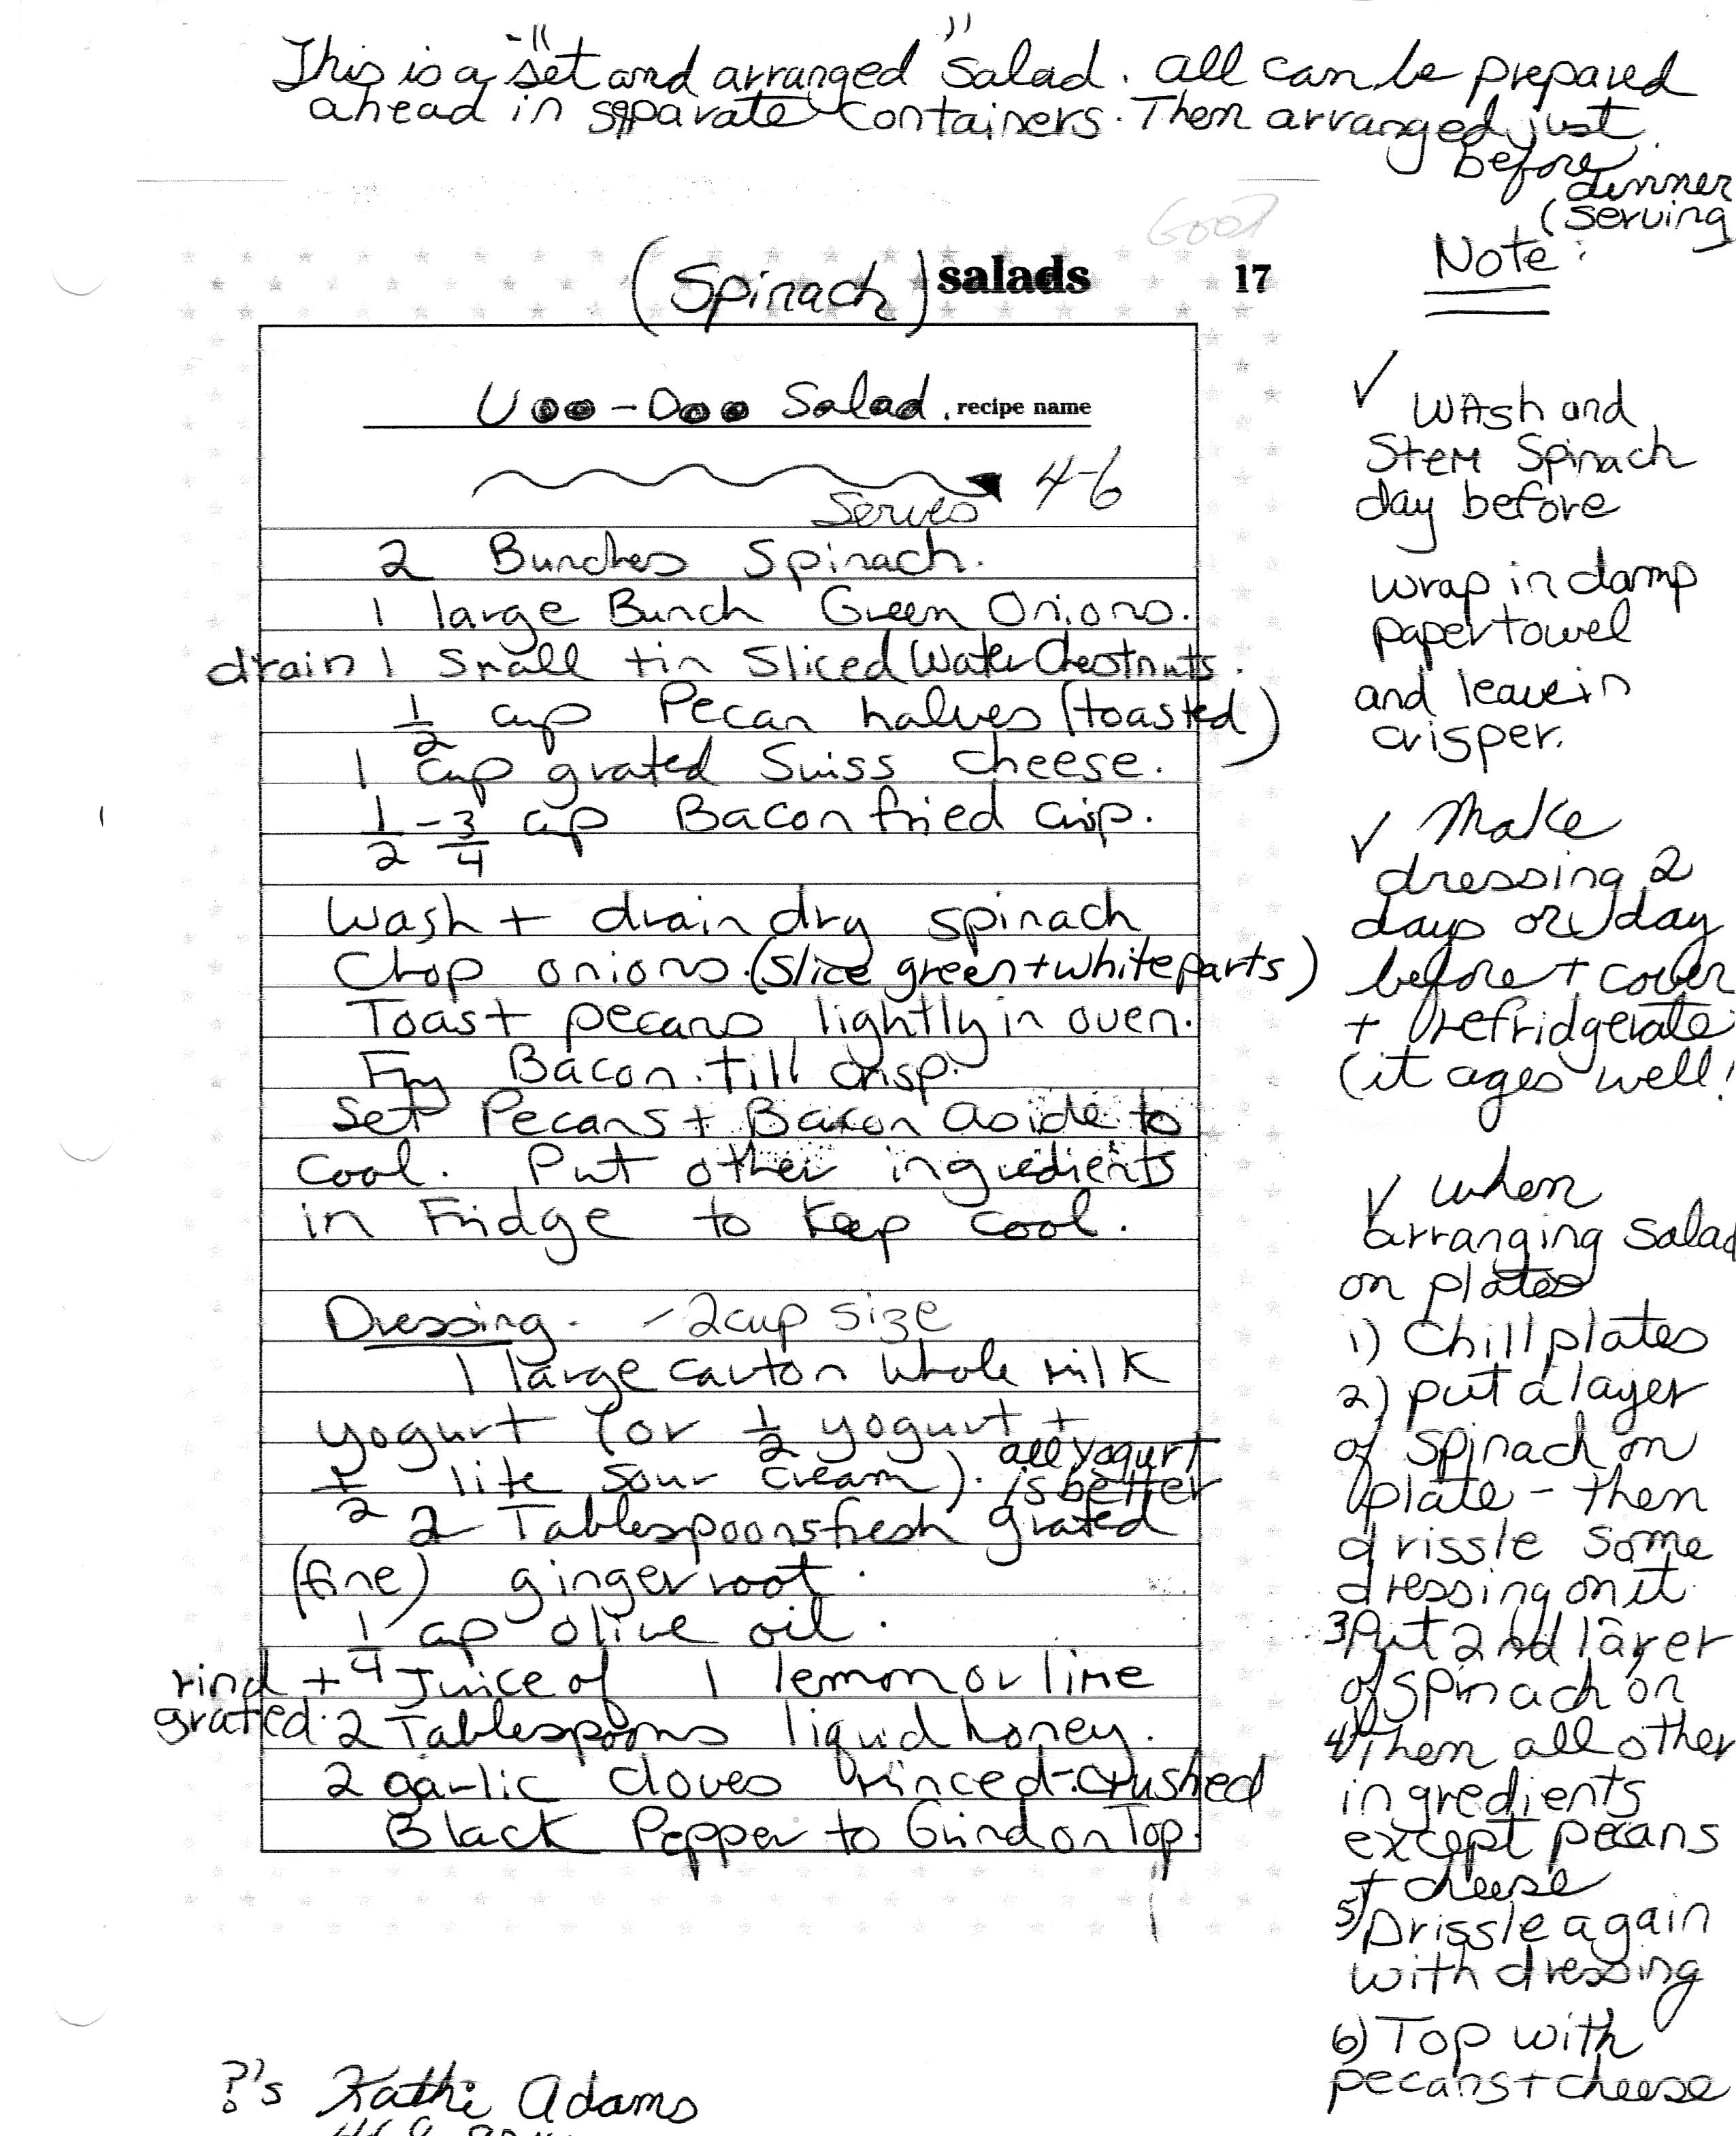 This is a "set and arranged" salad. All can be prepared
ahead in separate containers. Then arranged just
before
dinner
(serving
Good
(Spinach) salads 17
Voo-Doo Salad. recipe name
Serves 4-6
2 Bunches Spinach.
1 large Bunch Green Onions.
drain 1 Small tin Sliced Water Chestnuts.
1/2 cup Pecan halves (toasted)
1 cup grated Suiss cheese.
1/2 - 3/4 cup Bacon fried crisp.
Wash + drain dry spinach
Chop onions. (slice green + white parts)
Toast pecans lightly in oven.
Fry Bacon till crisp.
Set Pecans + Bacon aside to
cool. Put other ingredients
in Fridge to keep cool.
Dressing. - 2 cup size
1 large carton whole milk
yogurt (or 1/2 yogurt +
1/2 lite sour cream). all yogurt
is better
2 Tablespoons fresh grated
(fine) ginger root.
1/4 cup olive oil.
rind + Juice of 1 lemon or lime
grated. 2 Tablespoons liquid honey.
2 garlic cloves minced-crushed
Black Pepper to Grind on Top.
Note:
✓ Wash and
Stem Spinach
day before
wrap in damp
paper towel
and leave in
crisper.
✓ Make
dressing 2
days or 1 day
before + cover
+ refridgerate
(it ages well!
✓ when
arranging salad
on plates
1) Chill plates
2) put a layer
of spinach on
plate - then
drissle some
dressing on it
3) Put 2nd layer
of spinach on
4) Then all other
ingredients
except pecans
+ cheese
5) Drissle again
with dressing
6) Top with
pecans + cheese
?'s Kathi Adams